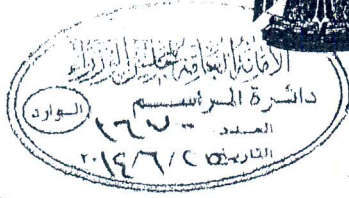 الأمانة العامة لمجلس الوزراء
دائرة المراسيم
الوارد
العدد
التاريخ ٢٠١٤/٦/٢٥